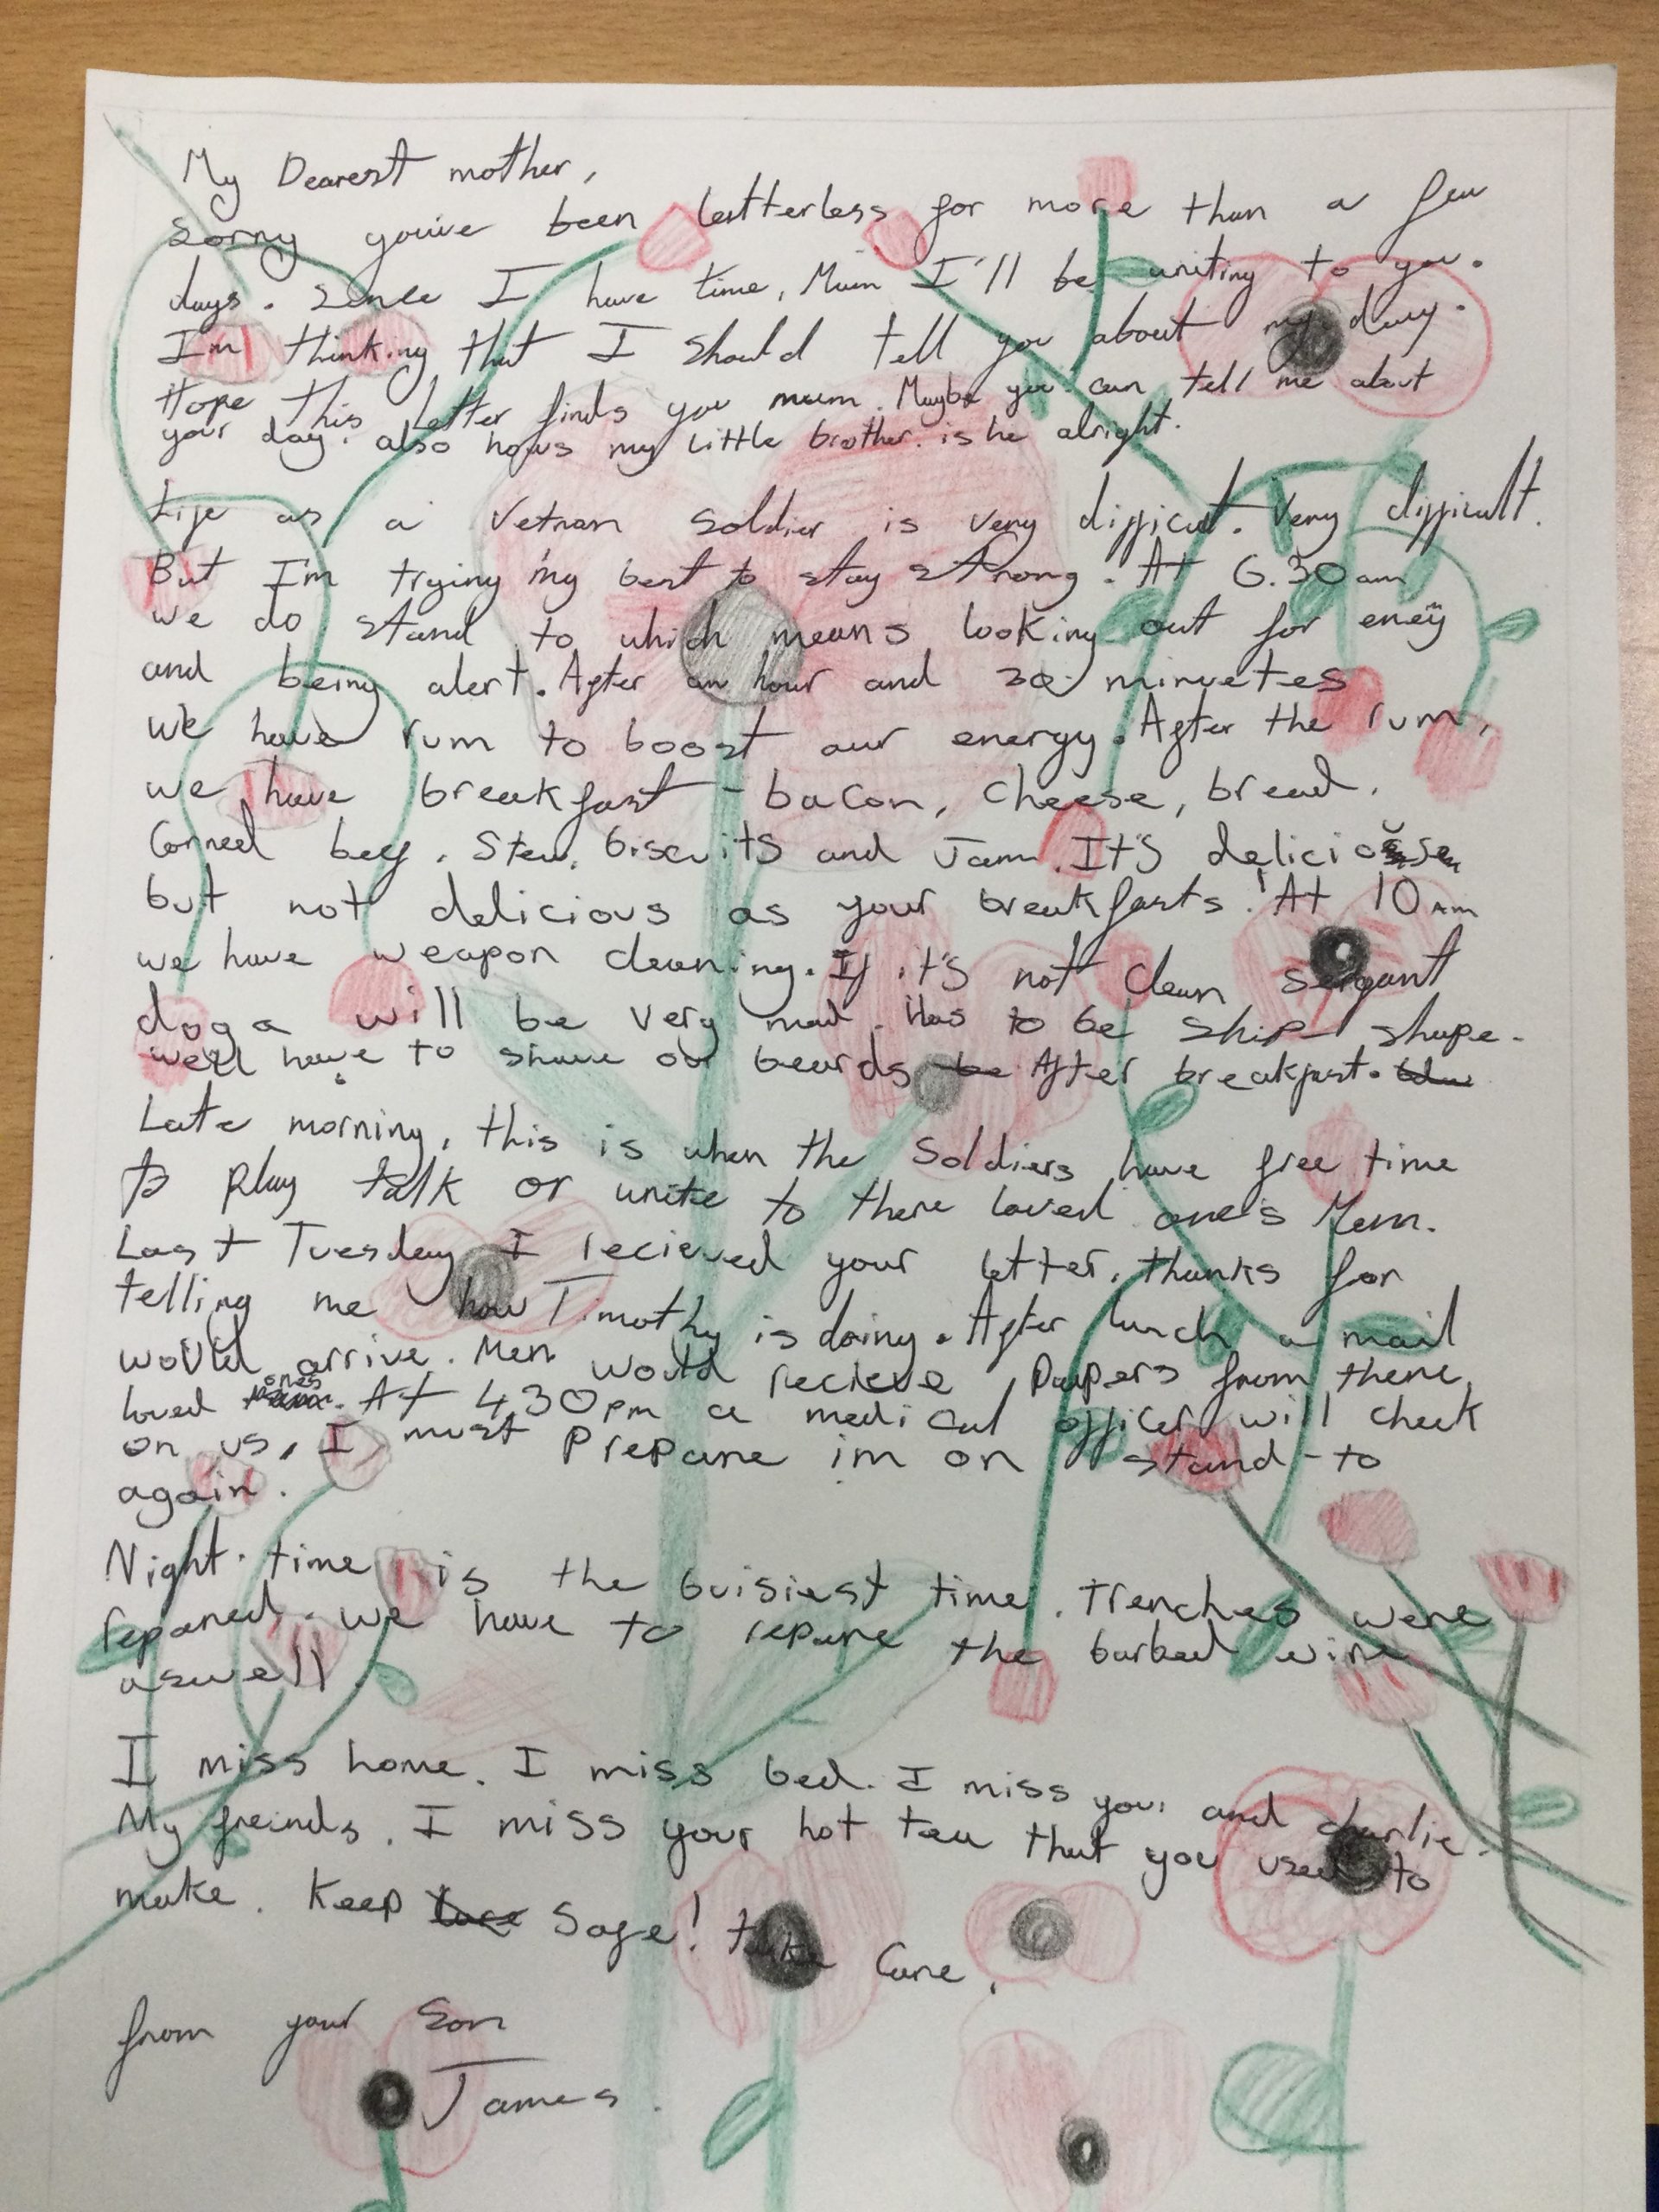 My Dearest mother,
Sorry youve been letterless for more than a few
days. Since I have time, Mum I'll be writing to you.
I'm thinking that I should tell you about my day.
Hope this Letter finds you mum. Maybe you can tell me about
your day. also hows my Little brother. is he alright.
Life as a Vetnam soldier is very difficult. Very difficult.
But I'm trying my best to stay strong. At 6.30am
we do stand to which means looking out for enemy
and being alert. After an hour and 30 minuetes
we have rum to boost our energy. After the rum,
we have breakfast - bacon, cheese, bread.
Corned beef. Stew. biscuits and Jam. It's delicio
but not delicious as your breakfasts! At 10 Am
we have weapon cleaning. If it's not clean sergant
doga will be very mad. Has to be ship-shape.
well have to shave our beards be After breakfast.
Late morning, this is when the Soldiers have free time
to play talk or write to there loved one's Mum.
Last Tuesday I recieved your letter, thanks for
telling me how Timothy is doing. After lunch a mail
would arrive. Men would recieve Papers from there
loved ones. At 4.30pm a medical officer will check
on us, I must prepare im on stand-to
again.
Night-time is the buisiest time. Trenches were
repared. we have to repare the barbed wire
aswell.
I miss home. I miss bed. I miss you, and charlie.
My freinds. I miss your hot tea that you used to
make. Keep Safe! take Care.
from your Son
James.